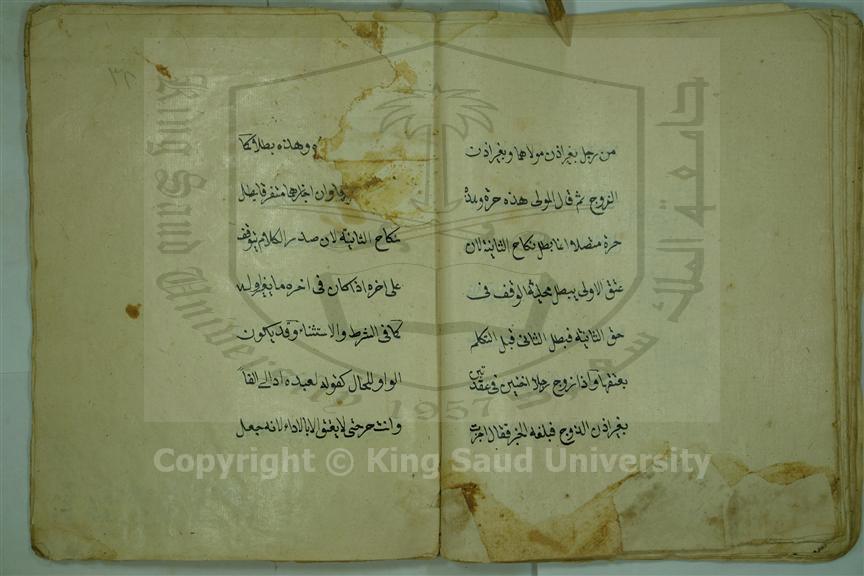 من رجل بغير اذن مولاها وبغير اذن
الزوج ثم قال المولى هذه حرة وهذه
حرة متصلا انما بطل نكاح الثانية لان
عتق الاولى يبطل محلية الوقف فى
حق الثانية فبطل الثانى قبل التكلم
بعتقها واذا زوج رجلا اختين فى عقدتين
بغير اذن الزوج فبلغه الخبر فقال اجزت
وهذه بطلا كما
وان اجازهما متفرقا بطل
نكاح الثانية لان صدر الكلام يتوقف
على اخره اذا كان فى اخره ما يغير اوله
كما فى الشرط والاستثناء وقد يكون
الواو للحال كقوله لعبده اد الى الفا
وانت حر حتى لا يعتق الا بالاداء لانه جعل
٣٨
King Saud University
جامعة الملك سعود
1957
Copyright © King Saud University